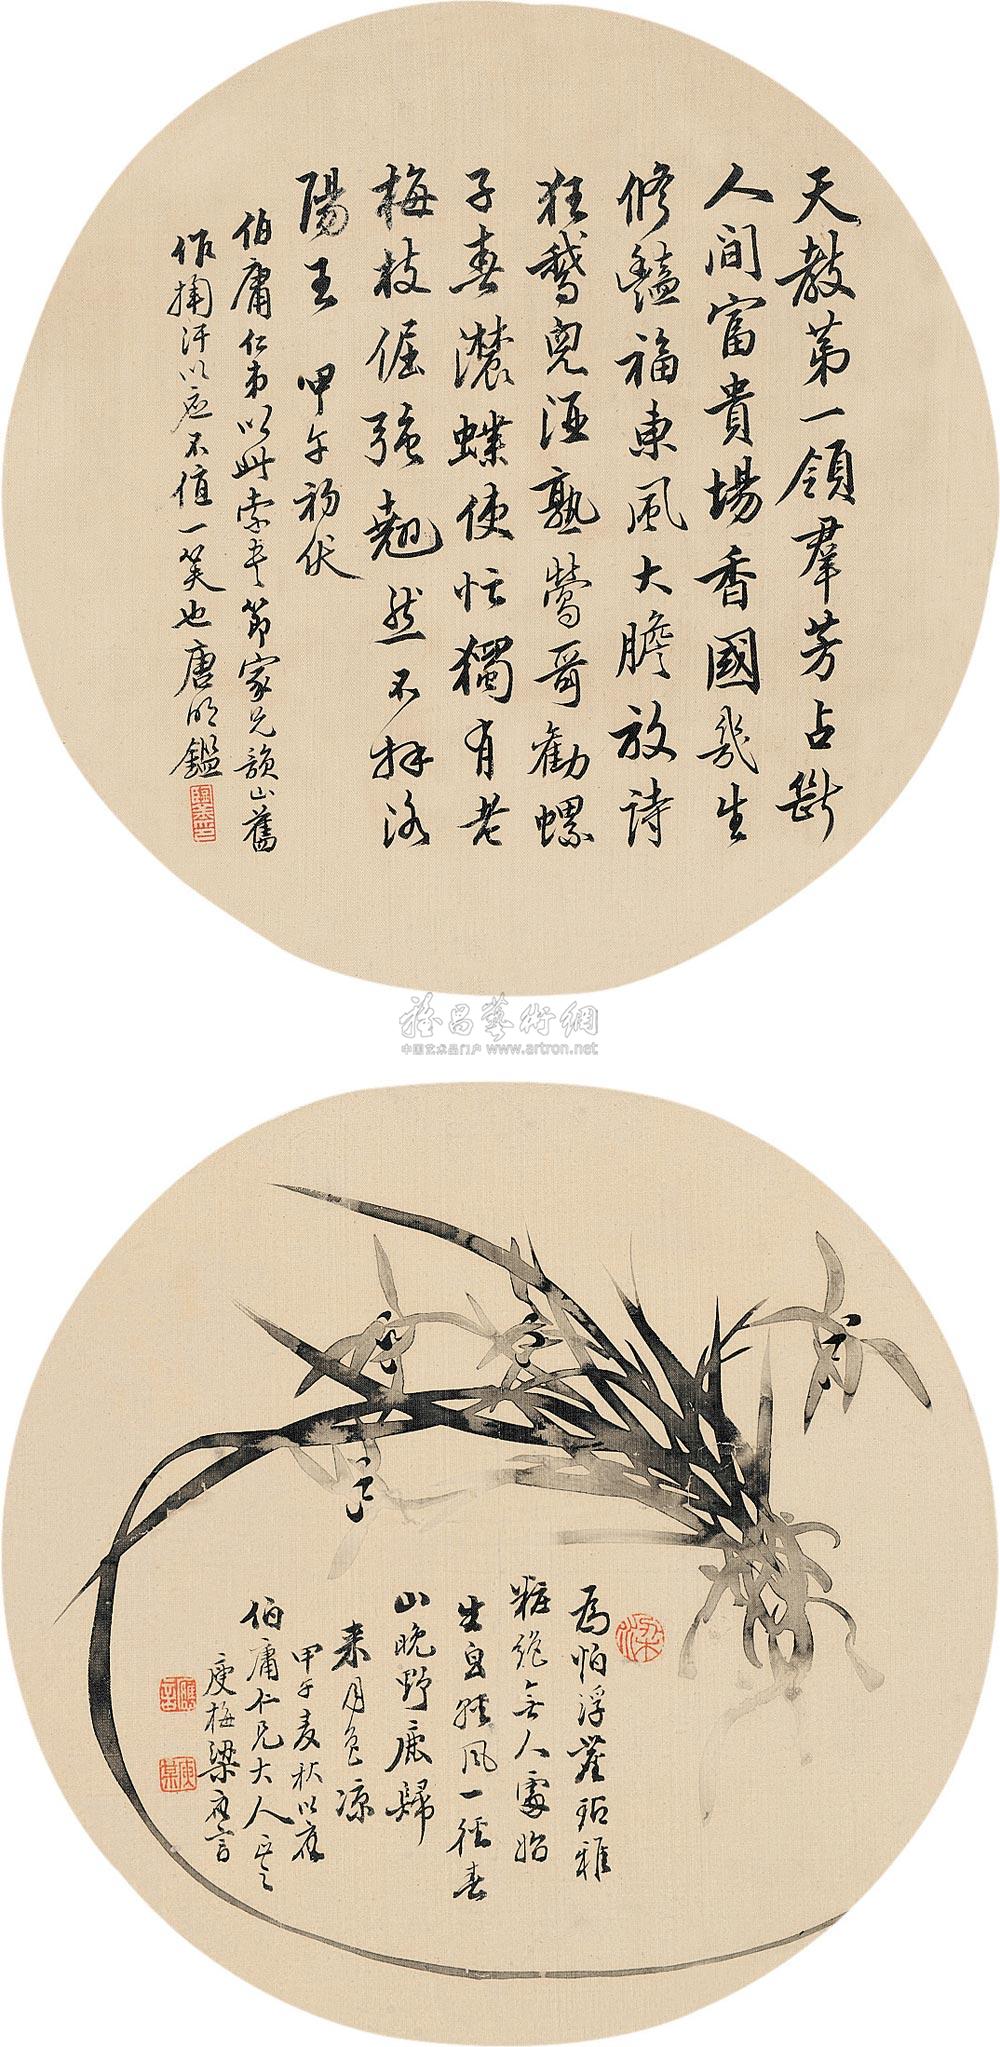 天教第一領羣芳占斷
人間富貴場香國幾生
修豔福東風大膽放詩
狂鵝兒酒熟鶯哥勸螺
子春濃蝶使忙獨有老
梅枝倔強翹然不拜洛
陽王 甲午初伏
伯庸仁弟以此索書節家兄韻山舊
作揮汗以應不值一笑也唐明鑑
雅昌藝術網
中国艺术品门户 www.artron.net
為怕浮華玷雅
粧絕無人處始
生自然風一徑春
山晚野鹿歸
來月色涼
甲午麦秋以應
伯庸仁兄大人
庾梅梁應言